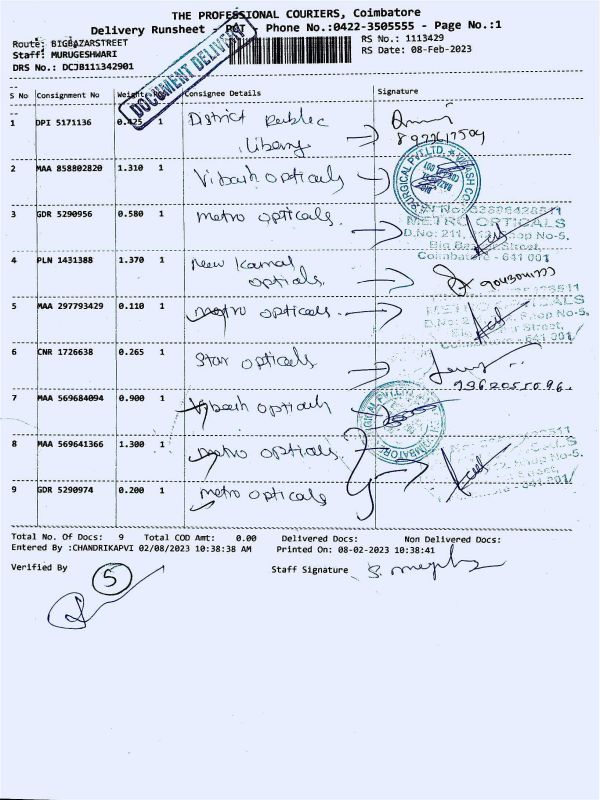 THE PROFESSIONAL COURIERS, Coimbatore
Delivery Runsheet - POT - Phone No.:0422-3505555 - Page No.:1
Route: BIGBAZARSTREET
RS No.: 1113429
Staff: MURUGESHWARI
RS Date: 08-Feb-2023
DRS No.: DCJB111342901
DOCUMENT DELIVERY
S No Consignment No Weight Consignee Details Signature
1 DPI 5171136 0.425 1 District Public
Library
2 MAA 858802820 1.310 1 Vibash opticals
SURGICAL PVT.LTD.
3 GDR 5290956 0.580 1 metro opticals.
METRO OPTICALS
D.No: 211, Shop No-5,
Big Bazaar Street,
Coimbatore - 641 001
4 PLN 1431388 1.370 1 New Kamal
opticals.
5 MAA 297793429 0.110 1 metro opticals.
Shop No-5,
Street,
641 001
6 CNR 1726638 0.265 1 Star opticals
7 MAA 569684094 0.900 1 Vibash opticals
8 MAA 569641366 1.300 1 metro opticals.
9 GDR 5290974 0.200 1 metro opticals
Total No. Of Docs: 9 Total COD Amt: 0.00 Delivered Docs: Non Delivered Docs:
Entered By :CHANDRIKAPVI 02/08/2023 10:38:38 AM Printed On: 08-02-2023 10:38:41
Verified By
5
Staff Signature